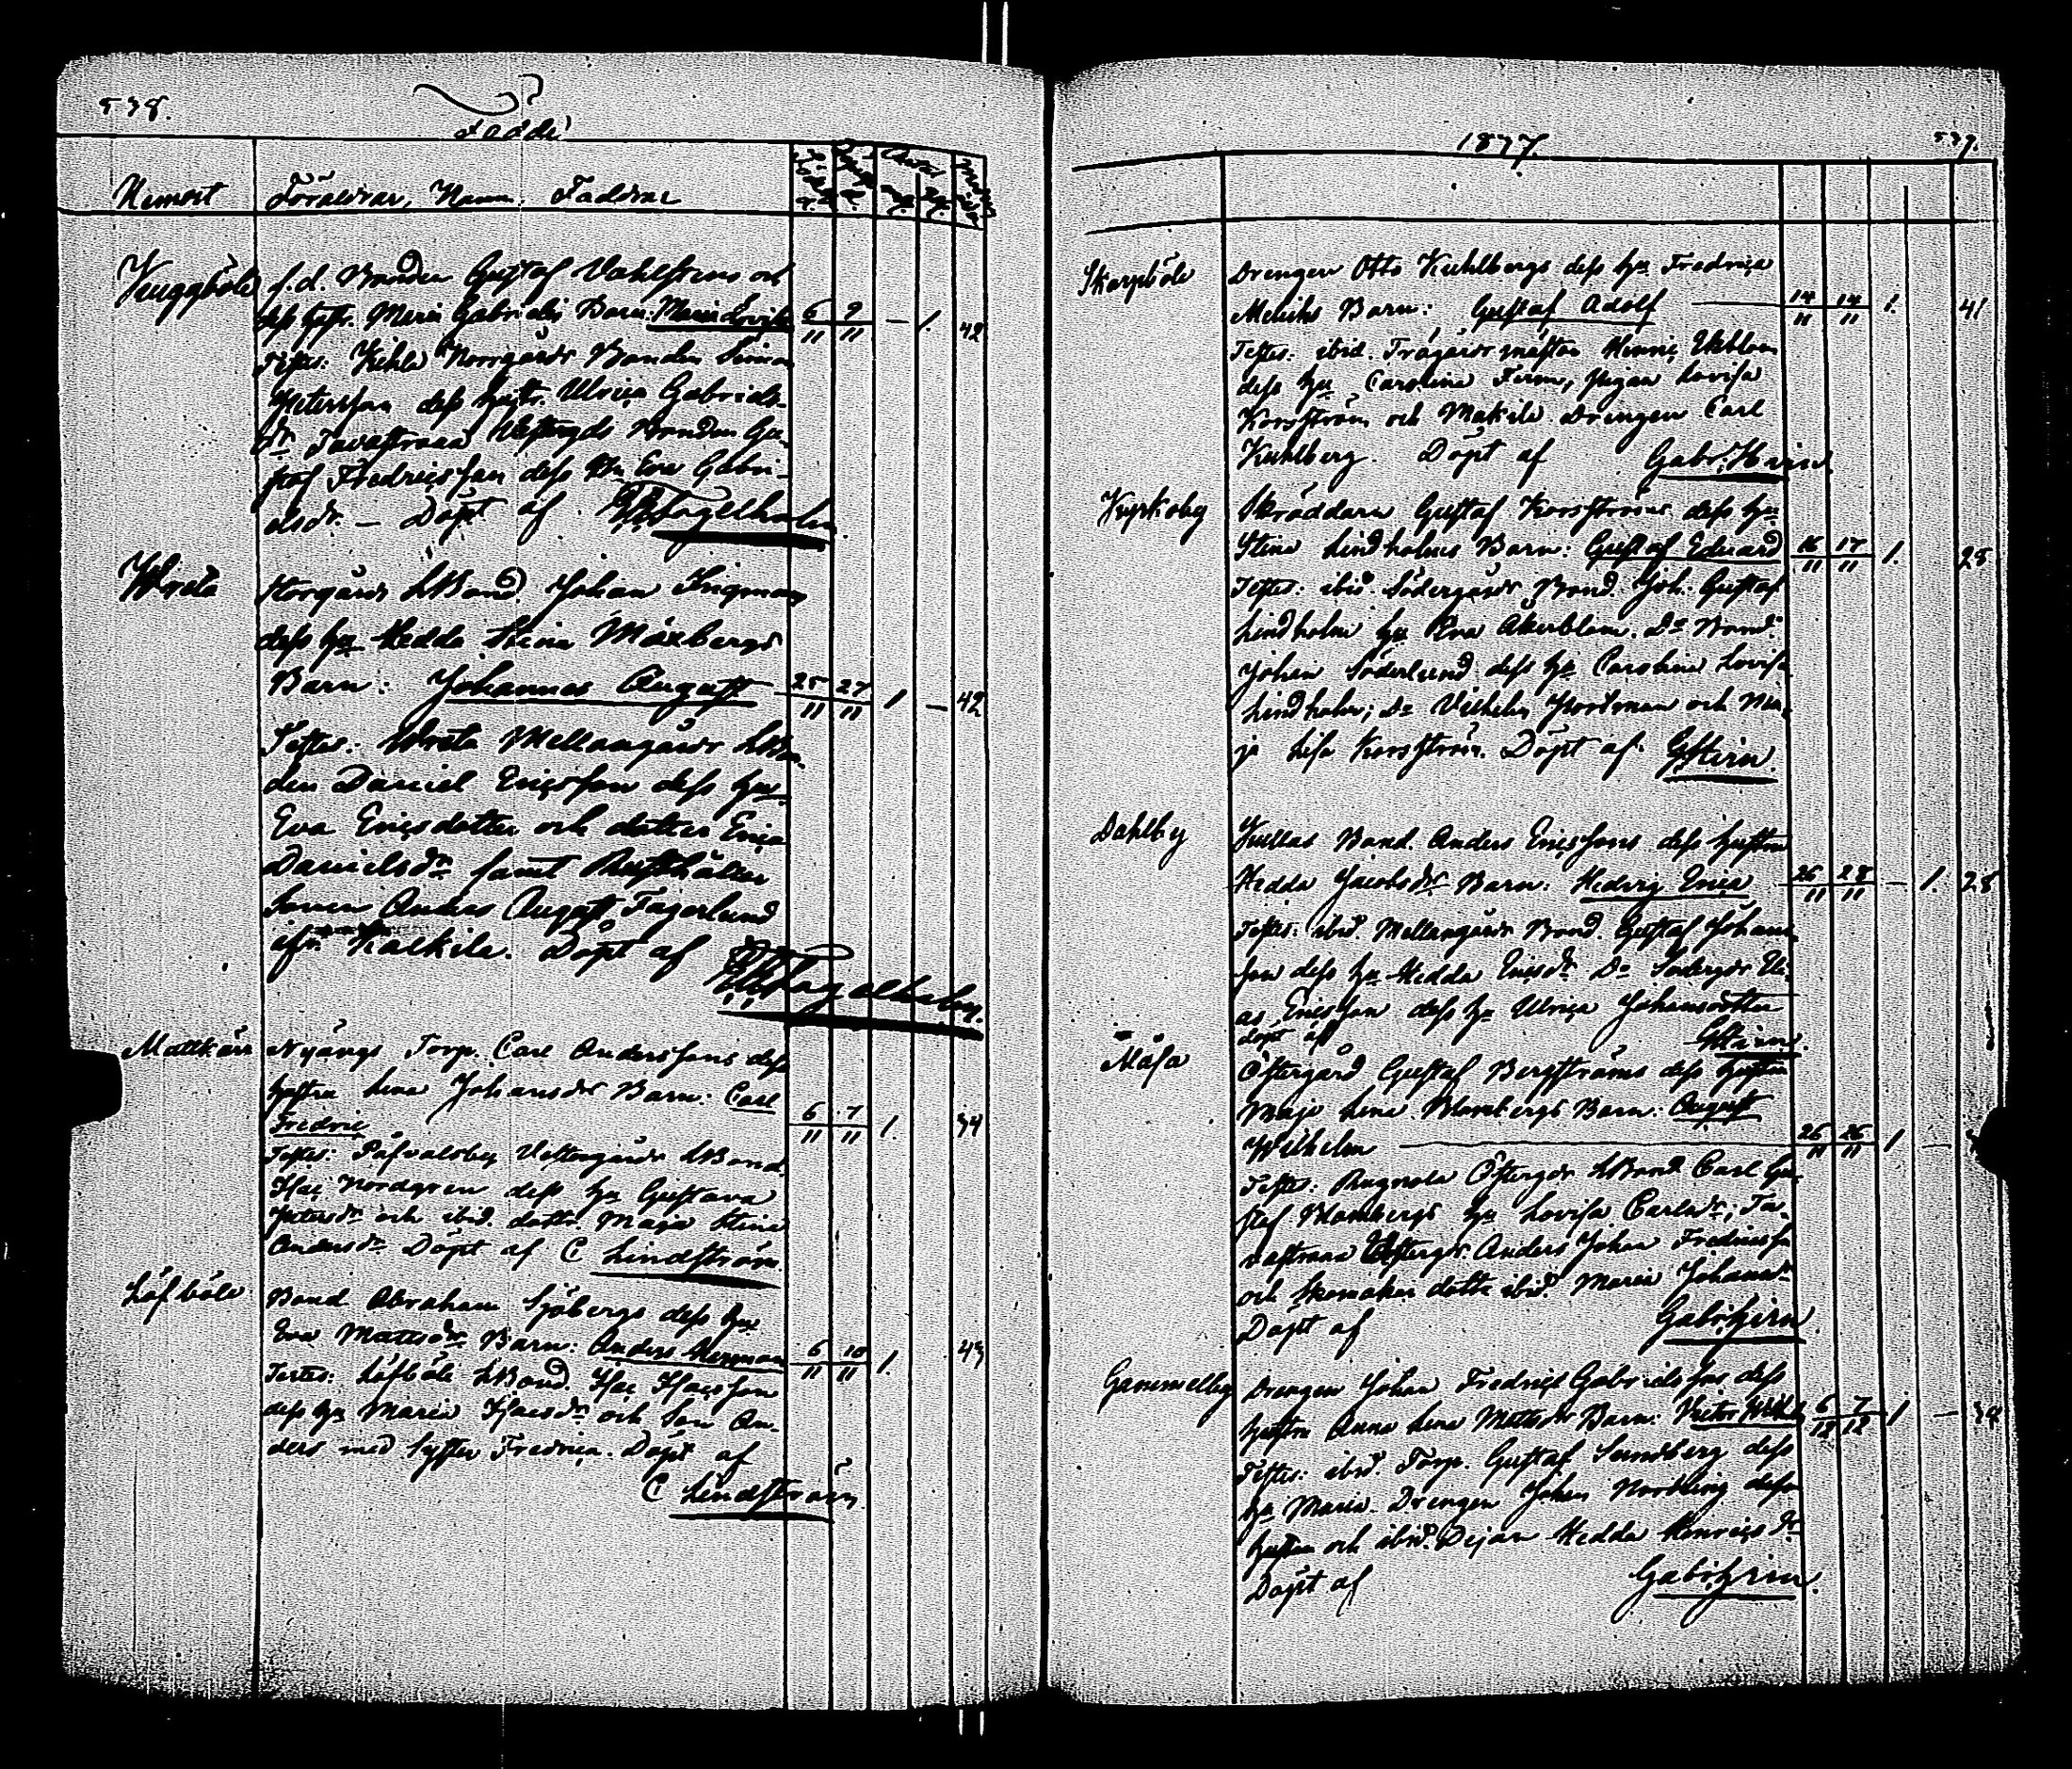 538.
Födde
Hemort Föräldrar, Namn, Faddrar
Knuggböle f.d. Bonden Gustaf Vahlstens och
dess hustr. Maria Gabrielis Barn: Maria Lovisa 6/11 9/11 — 1. 42
Testes: Norrgårds Bonden Simon
Petersson dess hustr. Ulrica Gabriels-
dr Tavastraaa Bonden Gu-
staf Fredricsson dess hu Eva Gabri-
elsdr. — Döpt af Fagelholm
Wreta Norrgårds Bond Johan Ingman
dess hu Hedda Stina Maxbergs
Barn: Johannes August 25/11 27/11 1 — 42
Testes: Wreta Mellangårds Bon-
den Daniel Ericsson dess hu
Eva Ericsdotter och dotter Erica
Danielsdr samt Rusthållar
Sonen Anders August Fagerlund
ifr. Kalkila. Döpt af
Fagelholm.
Mattkärr Nyängs Torp. Carl Anderssons dess
hustru Lena Johansdr Barn: Carl
Fredric 6/11 7/11 1. 34
Testes: Påfvalsby Westergårds Bond
Isac Nordgren dess hu Gustava
Petersdr och ibid. dottr. Maja Stina
Andersdr Döpt af C Lindström.
Löfböle Bond Abraham Sjöbergs dess hu
Eva Mattsdr Barn: Anders Herman 6/11 10/11 1. 43
Testes: Löfböle Bond. Isac Isacsson
dess hu Maria Isacsdr och Son An-
ders med Syster Fredrica. Döpt af
C Lindström
1877. 539.
Skarpböle Drengen Otto Kuhlbergs dess hu Fredrica
Melichs Barn: Gustaf Adolf 14/11 14/11 1. 41
Testes: ibid. Trägårdsmästar Henric Ekblom
dess hu Carolina Ferm, pigan Lovisa
Korsström och Makila Drengen Carl
Kuhlberg. Döpt af Gabr. Hirn
Kyrkoby Skräddarn Gustaf Korsströms dess hu
Stina Lindholms Barn: Gustaf Eduard 16/11 17/11 1. 25
Testes: ibid. Södergårds Bond. Joh. Gustaf
Lindholm hu Eva Åkerblom. Do Bond.
Johan Söderlund dess hu Carolina Lovisa
Lindholm; Do Vilhelm Nordman och Ma-
ja Lisa Korsström. Döpt af G Hirn.
Dahlby Kullas Bond. Anders Ericssons dess hustru
Hedda Jacobsdr Barn: Hedvig Erica 26/11 28/11 — 1. 28
Testes: ibid. Mellangårds Bond. Gustaf Johans-
son dess hu Hedda Ericsdr Do Södergds Eli-
as Ericsson dess hu Ulrica Johansdotter
döpt af G Hirn.
Måsa Östergård Gustaf Bergströms dess hustru
Maja Lena Blombergs Barn: August
Wilhelm 26/11 26/11 1 —
Testes: Rugnola Östergds Bond Carl Gu-
staf Blombergs hu Lovisa Carlsdr; Ta-
vastraaa Östergds Anders Johan Fredricss
och Skomakar dottr ibid. Maria Johansdr
Döpt af Gabr. Hirn
Gammelby Drengen Johan Fredric Gabrielssons dess
hustru Anna Lena Mattsdr Barn: Victor Wilh. 6/12 7/12 1 — 34
Testes: ibid. Torp. Gustaf Sundberg dess
hu Maria. Drengen Johan Nordling dess
hustru och ibid. Pejan Hedda Henricsdr
Döpt af Gabr. Hirn.